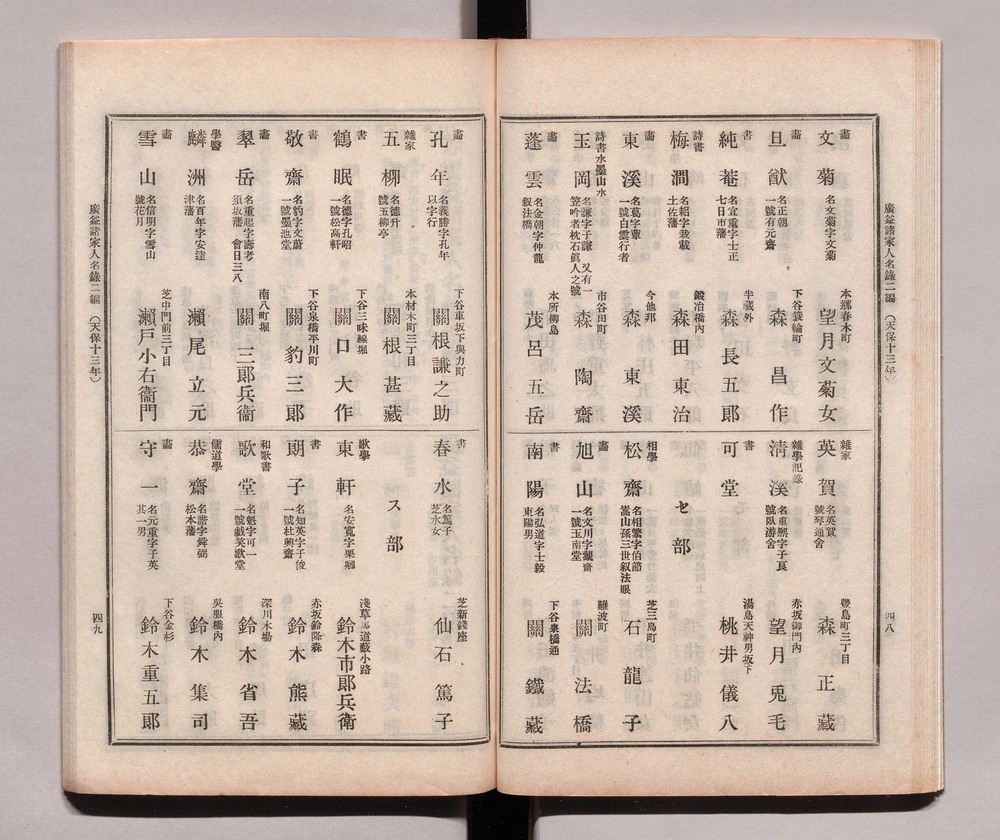 廣益諸家人名錄二編　（天保十三年）
四八
畫
文菊
名文菊字文菊
本鄕春木町
望月文菊女
畫
旦猷
名正朝
一號有元齋
下谷簑輪町
森昌作
書
純菴
名宜重字士正
七日市藩
半藏外
森長五郞
詩書
梅澗
名紹字栽載
土佐藩
鍛冶橋內
森田東治
畫
東溪
名葛字蕈
一號白雲行者
今他邦
森東溪
詩書水墨山水
玉岡
名謙字子謙　又有一
笠吟者枕石眞人之號
市谷田町
森陶齋
畫
蓬雲
名金朝字仲龍
叙法橋
本所柳島
茂呂五岳
雜家
英賀
名英賀
號琴通舍
豐島町三丁目
森正藏
雜學記錄
淸溪
名重熙字子長
號臥游舍
赤坂御門內
望月兎毛
書
可堂
湯島天神男坂下
桃井儀八
セ部
相學
松齋
名相繁字伯節
嵩山孫三世叙法眼
芝三島町
石龍子
畫
旭山
名文川字觀齋
一號玉南堂
難波町
關法橋
書
南陽
名弘道字士毅
東陽男
下谷泉橋通
關鐵藏
畫
孔年
名義勝字孔年
以字行
下谷車坂下與力町
關根謙之助
雜家
五柳
名德升
號五柳亭
本材木町三丁目
關根甚藏
書
鶴眠
名德字孔昭
一號松高軒
下谷三味線堀
關口大作
書
敬齋
名豹字文蔚
一號墨池堂
下谷泉橋平川町
關豹三郞
畫
翠岳
名重起字壽考
須坂藩　會日三八
南八町堀
關三郞兵衞
學醫
麟洲
名百年字安達
津藩
瀨尾立元
畫
雪山
名信明字雪山
號花月
芝中門前三丁目
瀨戶小右衞門
書
春水
名篤子
芝水女
芝新錢座
仙石篤子
ス部
歌學
東軒
名安寬字栗卿
淺草道藪小路
鈴木市郞兵衛
書
朗子
名知英字子俊
一號杜興齋
赤坂鈴降森
鈴木熊藏
和歌書
歌堂
名魁字可一
一號戲笑歌堂
深川木場
鈴木省吾
儒道學
恭齋
名譜字舜弼
松本藩
吳服橋內
鈴木集司
畫
守一
名元重字子英
其一男
下谷金杉
鈴木重五郞
廣益諸家人名錄二編　（天保十三年）
四九